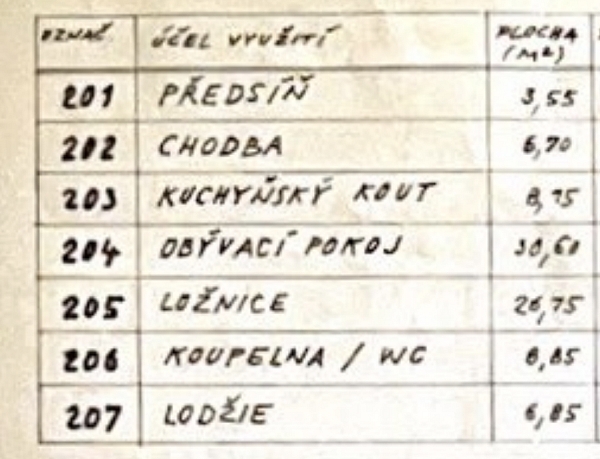 OZNAČ. ÚČEL VYUŽITÍ PLOCHA
(M2)
201 PŘEDSÍŇ 3,55
202 CHODBA 6,70
203 KUCHYŇSKÝ KOUT
204 OBÝVACÍ POKOJ 30,60
205 LOŽNICE 26,75
206 KOUPELNA / WC 8,85
207 LODŽIE 6,85